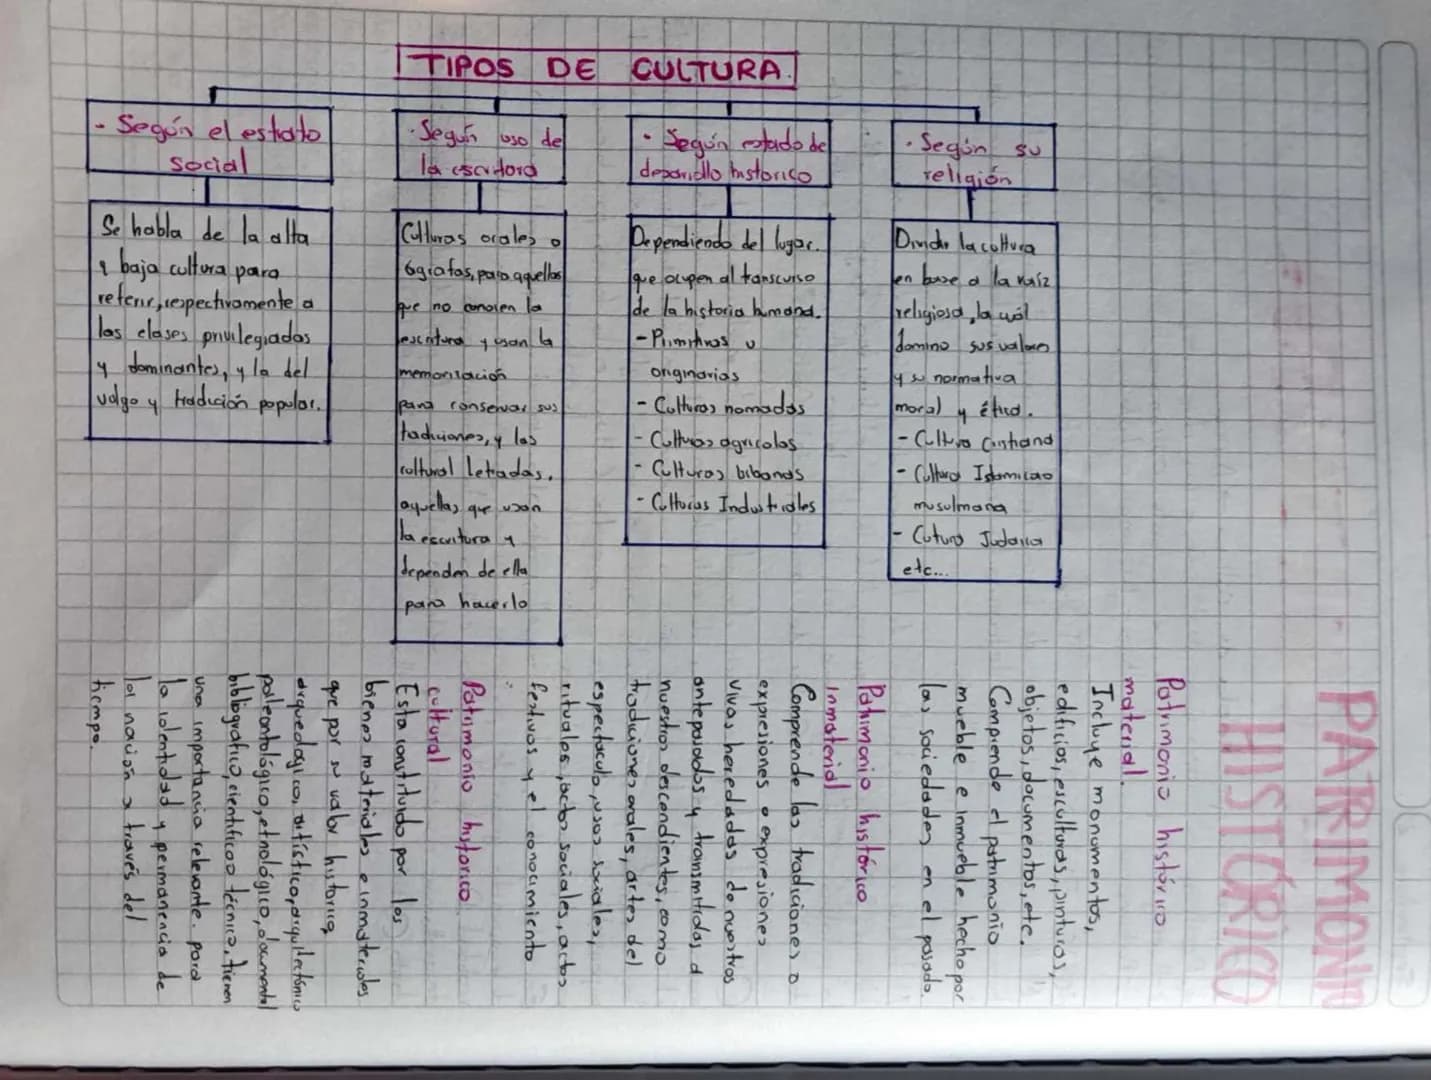 TIPOS DE CULTURA.
- Según el estrato
social
Se habla de la alta
y baja cultura para
referir, respectivamente a
las clases privilegiadas
y dominantes, y la del
vulgo y tradición popular.
· Según uso de
la escritora
Culturas orales o
ógrafas, para aquellas
que no conocen la
escritura y usan la
memorización
para conservar sus
tradiciones, y las
cultural letradas,
aquellas que usan
la escritura y
dependen de ella
para hacerlo
· Según estado de
desarrollo historico
Dependiendo del lugar.
que ocupen al transcurso
de la historia humana.
- Primitivas u
originarias
- Culturas nomadas
- Culturas agricolas
- Culturas
- Culturas Industriales
· Según su
religión
Divide la cultura
en base a la raíz
religiosa, la cuál
domino sus valores
y su normativa
moral y ética.
- Cultura Cristiana
- Cultura Islamica o
musulmana
- Cutura Judaica
etc...
PATRIMONIO
HISTÓRICO
Patrimonio histórico
material.
Incluye monumentos,
edificios, esculturas, pinturas,
objetos, documentos, etc.
Comprende el patrimonio
mueble e inmueble hecho por
las sociedades en el pasado.
Patrimonio histórico
inmaterial
Comprende las tradiciones o
expresiones o expresiones
vivas heredadas de nuestros
antepasados y transmitidas a
nuestros descendientes, como
tradiciones orales, artes del
espectaculo, usos sociales,
rituales, actos sociales, actos
festivos y el conocimiento
Patrimonio historico
cultural
Esta constituido por los
bienes materiales e inmateriales
que por su valor historico,
arqueologico, artístico, arquitectónico
paleontológico, etnológico, documental
bibliografico, cientifico o técnico, tienen
una importancia relevante. para
la identidad y permanencia de
la nación a través del
tiempo.